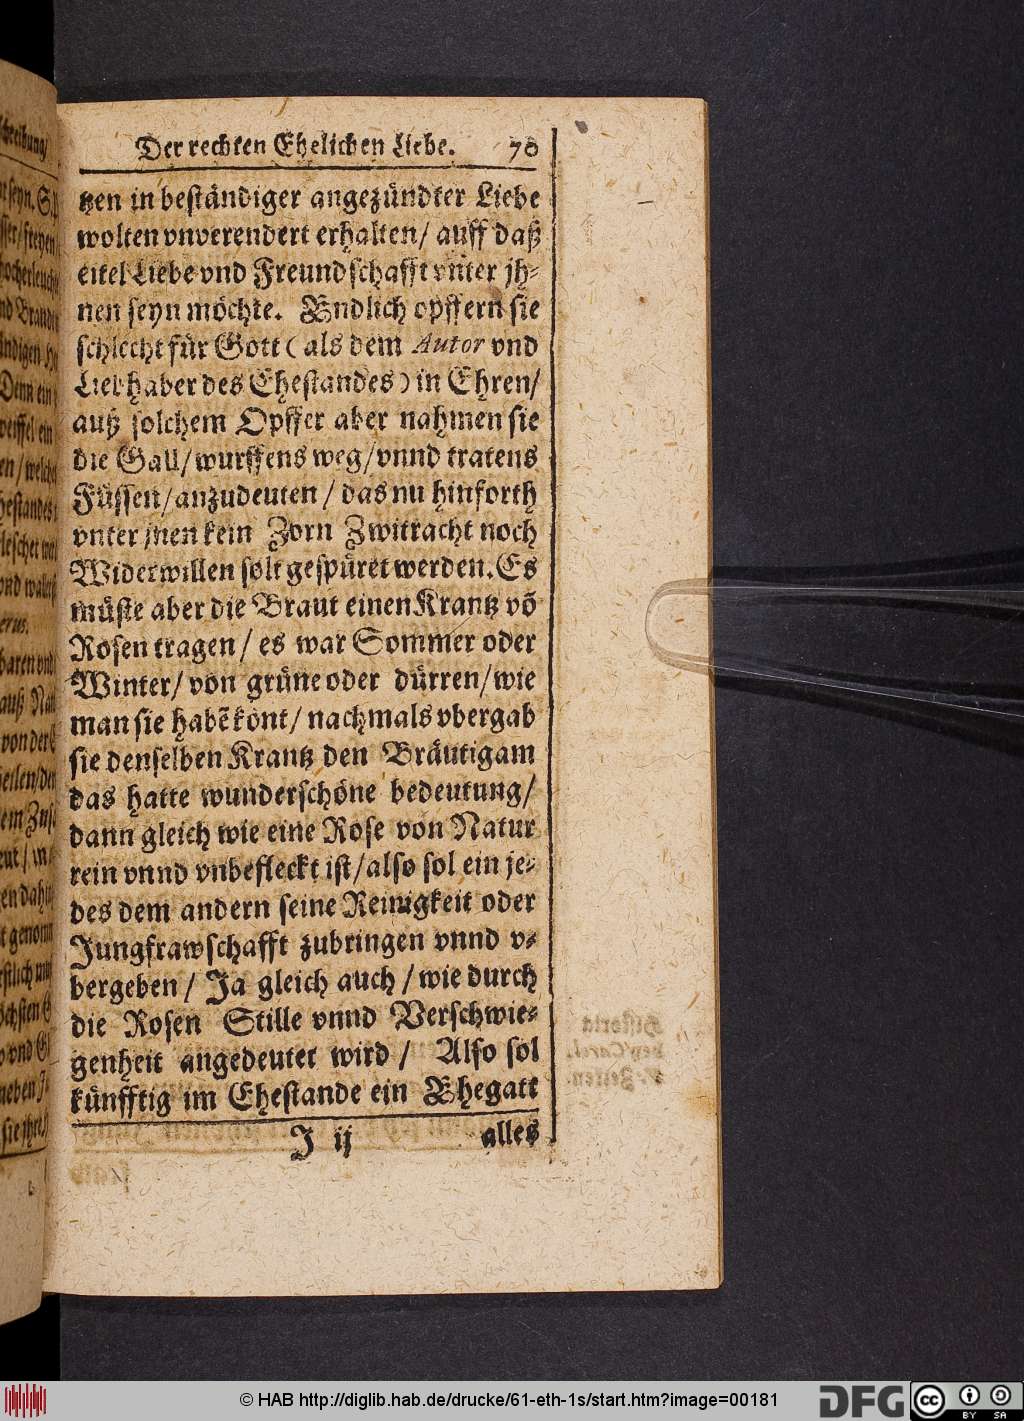 Der rechten Ehelichen Liebe. 70
tzen in beständiger angezündter Liebe
wolten vnverendert erhalten / auff daß
eitel Liebe vnd Freundschafft vnter jh-
nen seyn möchte. Vndlich opffern sie
schlecht für Gott ( als dem Autor vnd
Liebhaber des Ehestandes ) in Ehren /
auß solchem Opffer aber nahmen sie
die Gall / wurffens weg / vnnd tratens
Füssen / anzudeuten / das nu hinforth
vnter jnen kein Zorn Zwitracht noch
Widerwillen solt gespüret werden. Es
müste aber die Braut einen Krantz võ
Rosen tragen / es war Sommer oder
Winter / von grüne oder dürren / wie
man sie habẽ könt / nachmals vbergab
sie denselben Krantz den Bräutigam
das hatte wunderschöne bedeutung /
dann gleich wie eine Rose von Natur
rein vnnd vnbefleckt ist / also sol ein je-
des dem andern seine Reinigkeit oder
Jungfrawschafft zubringen vnnd v-
bergeben / Ja gleich auch / wie durch
die Rosen Stille vnnd Verschwie-
genheit angedeutet wird / Also sol
künfftig im Ehestande ein Ehegatt
J ij alles
© HAB http://diglib.hab.de/drucke/61-eth-1s/start.htm?image=00181
DFG
cc
BY SA